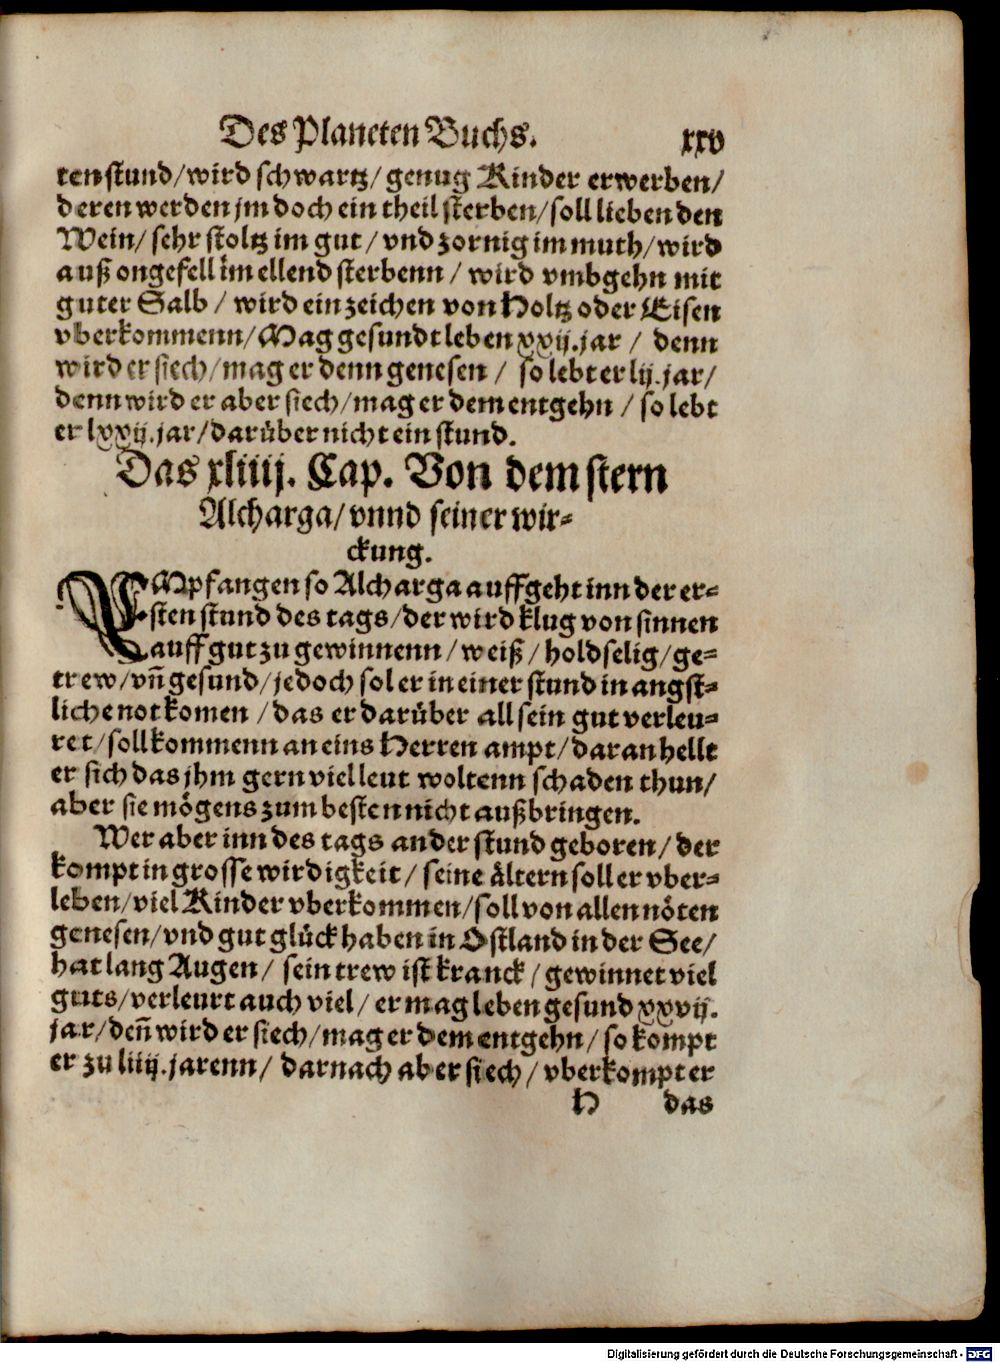 Des Planeten Buchs. xxv
ten stund/ wird schwartz/ genug Kinder erwerben/
deren werden jm doch ein theil sterben/ soll lieben den
Wein/ sehr stoltz im gut/ vnd zornig im muth/ wird
auß ongefell im ellend sterbenn/ wird vmbgehn mit
guter Salb/ wird ein zeichen von Holtz oder Eisen
vberkommenn/ Mag gesundt leben xxij. jar/ denn
wird er siech/ mag er denn genesen/ so lebt er lij. jar/
denn wird er aber siech/ mag er dem entgehn/ so lebt
er lxxij. jar/ darüber nicht ein stund.
Das xliiij. Cap. Von dem stern
Alcharga/ vnnd seiner wir-
ckung.
EMpfangen so Alcharga auffgeht inn der er-
sten stund des tags/ der wird klug von sinnen
auff gut zu gewinnenn/ weiß/ holdselig/ ge-
trew/ vn̄ gesund/ jedoch sol er in einer stund in angst-
liche not komen/ das er darüber all sein gut verleu-
ret/ soll kommenn an eins Herren ampt/ daran hellt
er sich das jhm gern viel leut woltenn schaden thun/
aber sie mögens zum besten nicht außbringen.
Wer aber inn des tags ander stund geboren/ der
kompt in grosse wirdigkeit/ seine ältern soll er vber-
leben/ viel Kinder vberkommen/ soll von allen nöten
genesen/ vnd gut glück haben in Ostland in der See/
hat lang Augen/ sein trew ist kranck/ gewinnet viel
guts/ verleurt auch viel/ er mag leben gesund xxvij.
jar/ den̄ wird er siech/ mag er dem entgehn/ so kompt
er zu liiij. jarenn/ darnach aber siech/ vberkompt er
H das
Digitalisierung gefördert durch die Deutsche Forschungsgemeinschaft - DFG